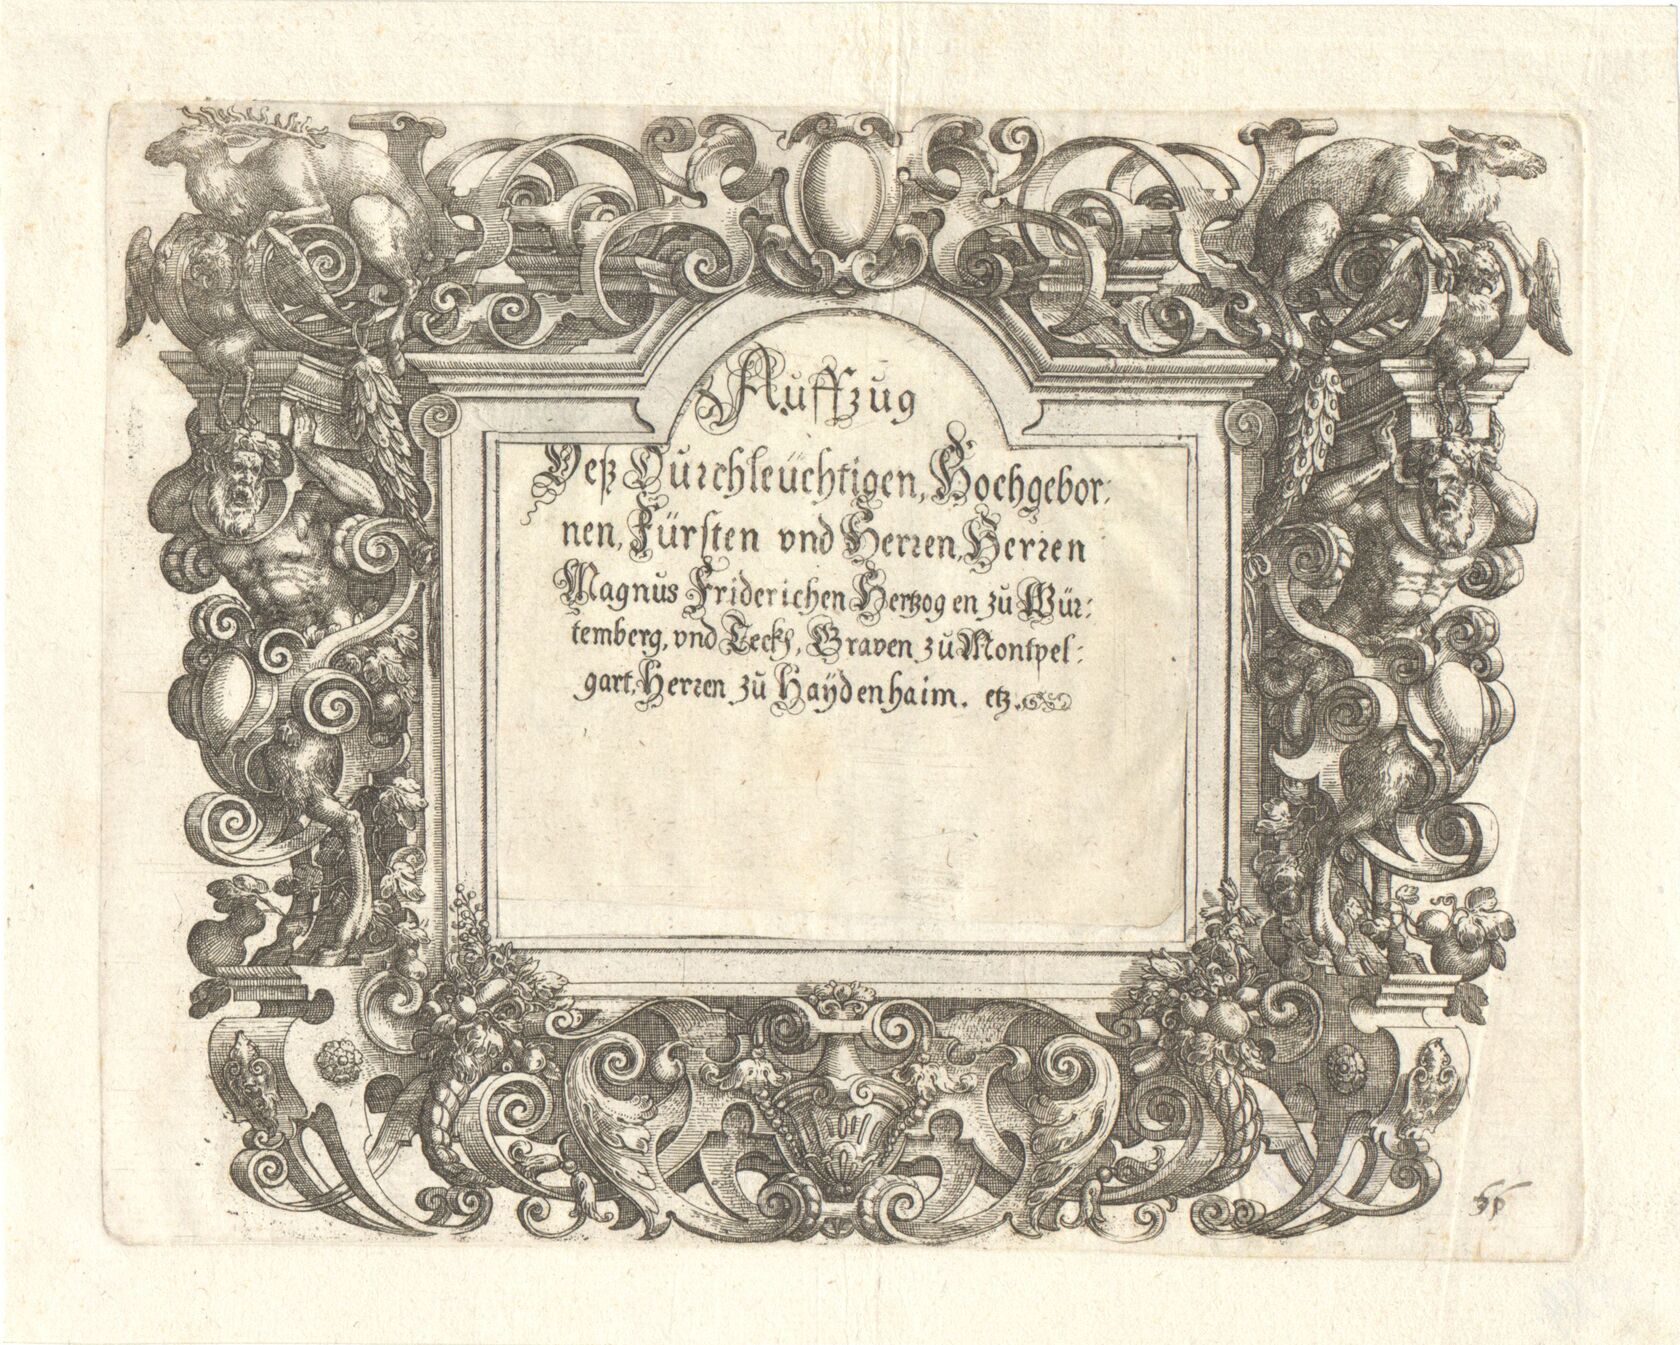 Auffzug
Deß Durchleüchtigen, Hochgebor:
nen, Fürsten vnd Herren, Herren
Magnus Friderichen Hertzogen zu Wür:
temberg, vnd Teckh, Graven zů Montpel:
gart, Herren zů Haÿdenhaim. etz.